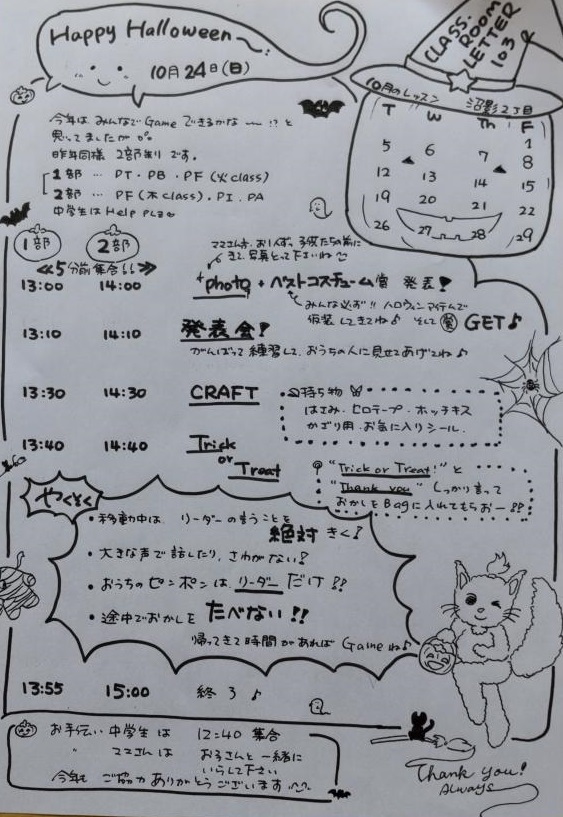 Happy Halloween
10月24日(日)
CLASS.
ROOM
LETTER
103
10月のレッスン 沼影2丁目
T W Th F
1
5 6 7 8
12 13 14 15
19 20 21 22
26 27 28 29
今年は みんなで Game できるかな ー !? と
思ってましたが
昨年同様 2部制り です。
1部 … PT・PB・PF(火class)
2部 … PF(木class)・PI・PA
中学生は Help
1部 2部
≪5分前集合!!≫
きて、写真とって下さいね
13:00 14:00 photo + ベストコスチューム賞 発表!
みんな必ず!! ハロウィンアイテムで
仮装してきてね♪ そして 賞 GET♪
13:10 14:10 発表会!
がんばって練習して、おうちの人に見せてあげてね♪
13:30 14:30 CRAFT
持ち物
はさみ・セロテープ・ホッチキス
かざり用・お気に入りシール.
13:40 14:40 Trick
or
Treat
"Trick or Treat!" と
"Thank you" しっかり言って
おかしを Bagに入れてもらおー!!
やくそく
・移動中は、リーダーの言うことを
絶対 きく!
・大きな声で話したり、さわがない!
・おうちの ピンポンは、リーダー だけ!!
・途中でおかしを たべない!!
帰ってきて時間があれば Game ね♪
13:55 15:00 終了♪
お手伝い 中学生は 12:40 集合
〃 ママさんは お子さんと一緒に
いらして下さい
今年も ご協力 ありがとうございます
Thank you!
Always